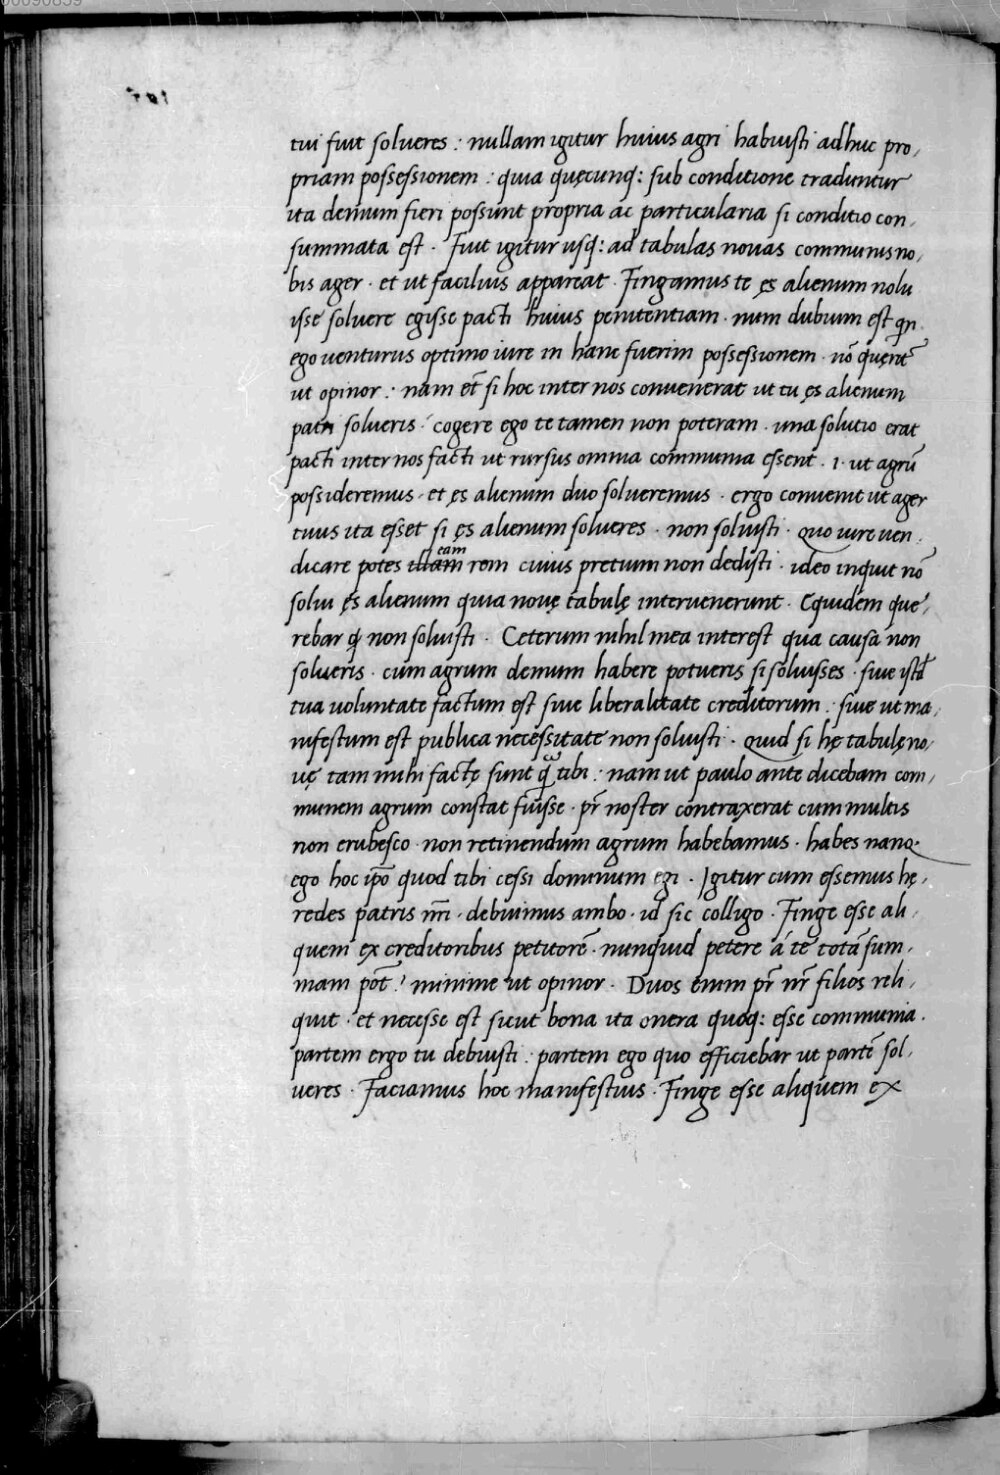 tui fuit solveres : nullam igitur huius agri habuisti adhuc pro,
priam possessionem : quia quęcunq: sub conditione traduntur
ita demum fieri possunt propria ac particularia si conditio con,
summata est · Fuit igitur usq: ad tabulas novas communis no,
bis ager · et ut facilius appareat · Fingamus te ęs alienum nolu
isse solvere egisse pacti huius penitentiam · num dubium est qn
ego venturus optimo iure in hanc fuerim possessionem · nō
ut opinor : nam et̄ si hoc inter nos convenerat ut tu ęs alienum
patri solveris · cogere ego te tamen non poteram · una solutio erat
pacti inter nos facti ut rursus omnia communia essent · i · ut agrū
possideremus · et ęs alienum duo solveremus · ergo convenit ut ager
tuus ita esset si ęs alienum solveres · non solvisti · quo iure ven,
dicare potes illam eam rem cuius pretium non dedisti · ideo inquit nō
solui ęs alienum quia novę tabulę intervenerunt · Equidem que,
rebar q non solvisti · Ceterum nihil mea interest qua causa non
solveris · cum agrum demum habere potueris si solvisses · sive istd
tua voluntate factum est sive liberalitate creditorum : sive ut ma,
nifestum est publica necessitate non solvisti · Quid si hę tabulę no,
vę tam mihi factę sunt q̄ tibi : nam ut paulo ante dicebam com,
munem agrum constat fuisse · pr̄ noster contraxerat cum multis
non erubesco · non retinendum agrum habebamus · habes nanq·
ego hoc ipō quod tibi cessi dominum egi · Igitur cum essemus hę,
redes patris nr̄i · debuimus ambo · id sic colligo · Finge esse ali,
quem ex creditoribus petitorē · nunquid petere á te totā sum,
mam pōt ? minime ut opinor · Duos enim pr̄ nr̄ filios reli,
quit · et necesse est sicut bona ita onera quoq: esse communia ·
partem ergo tu debuisti : partem ego quo efficiebar ut partē sol,
veres · Faciamus hoc manifestius · Finge esse aliquem ex